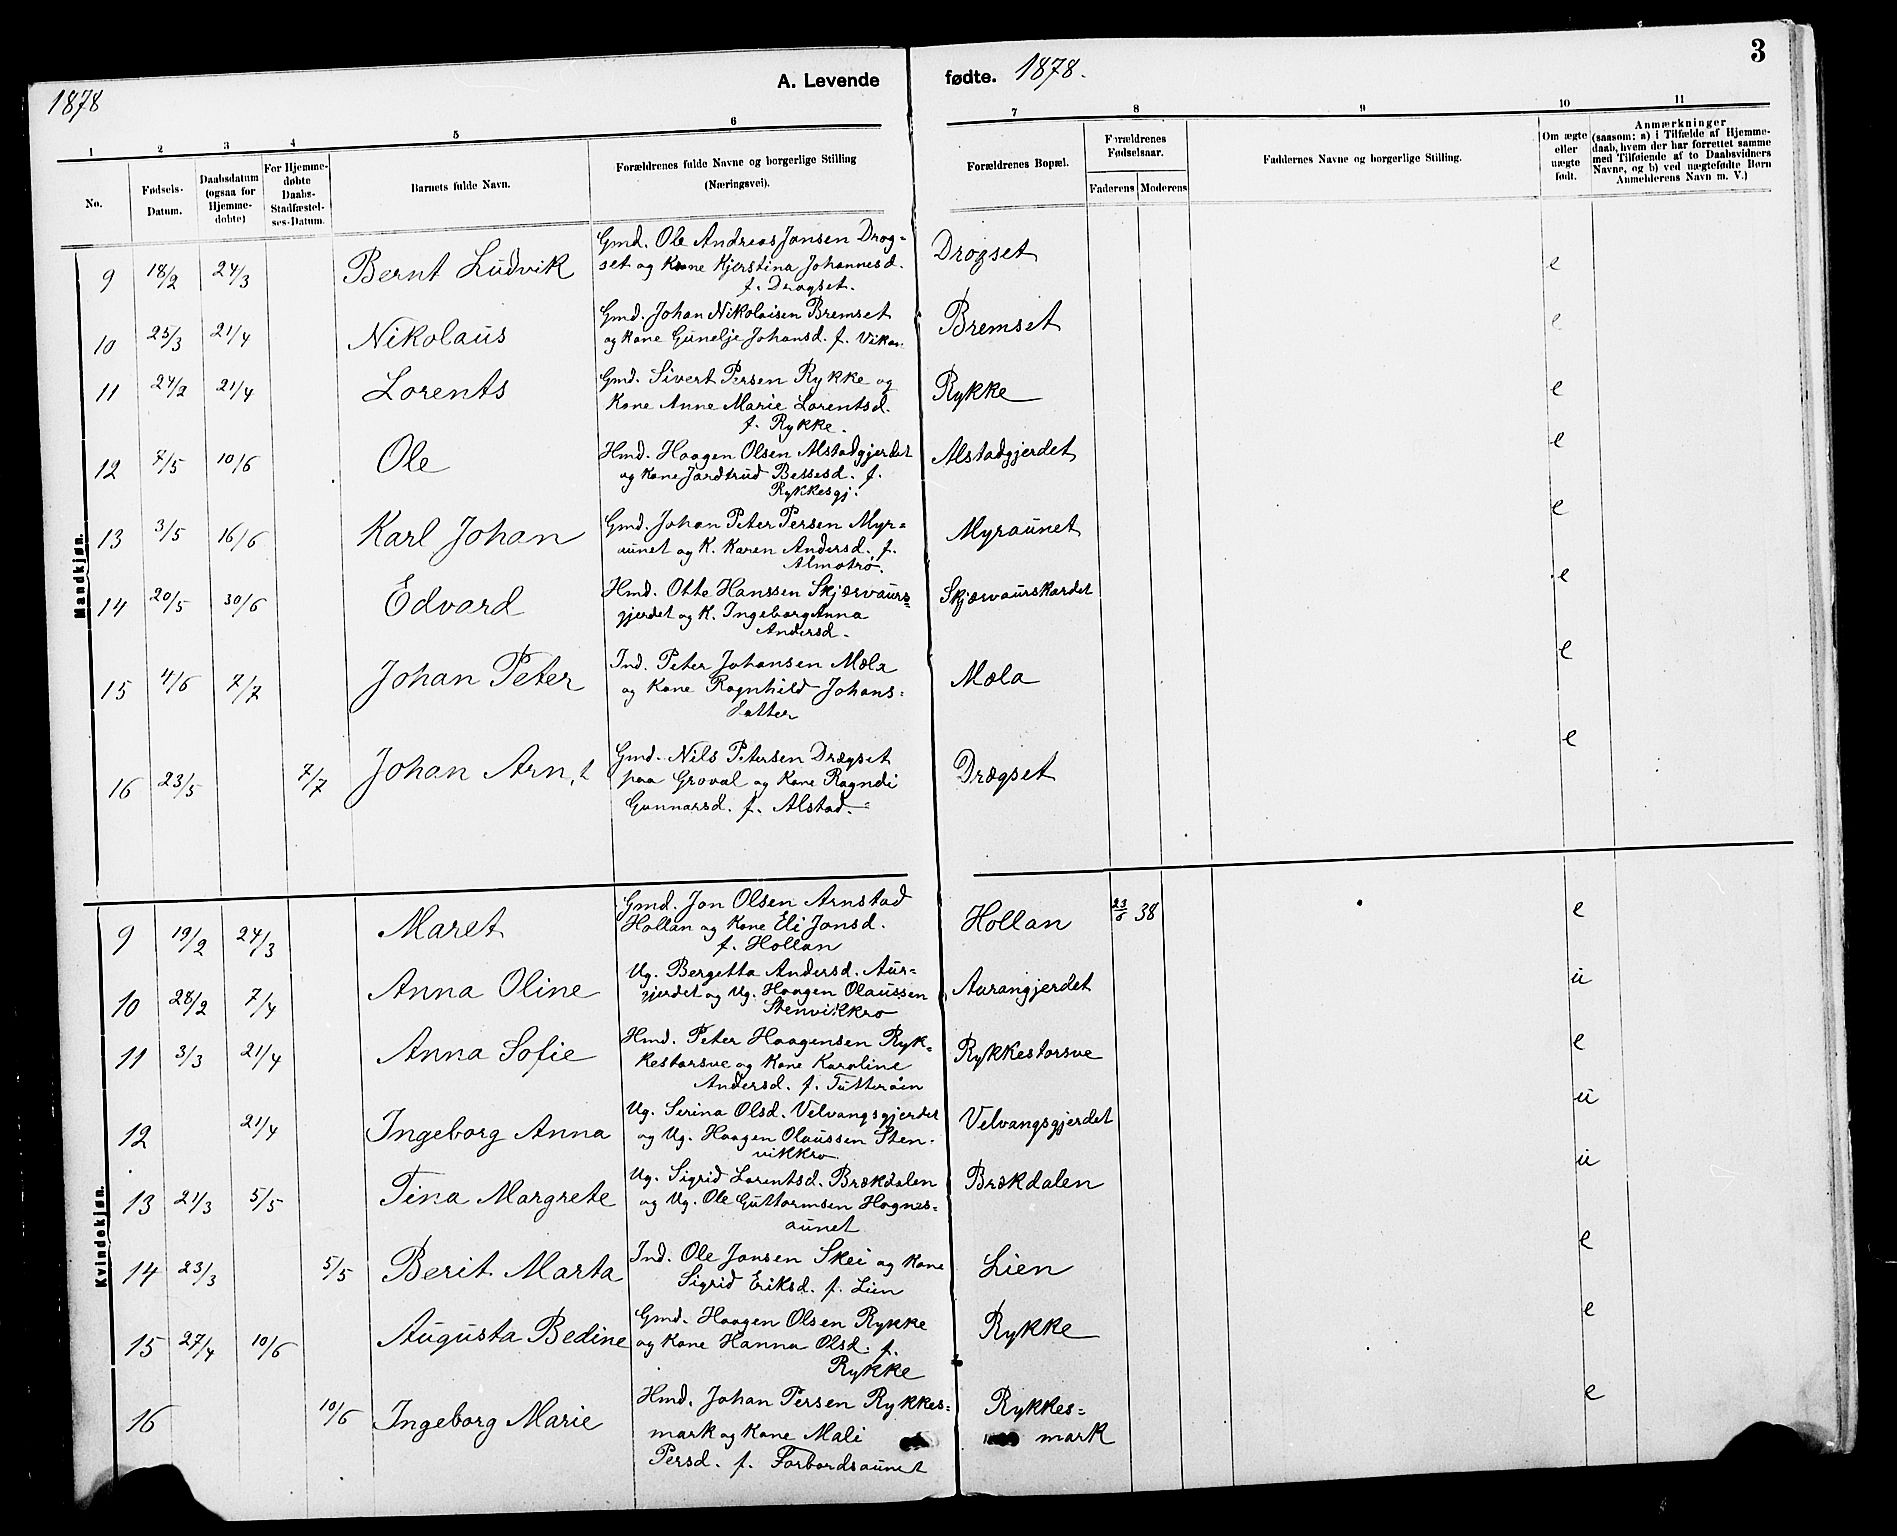 3
1878
A. Levende fødte. 1878.
1 2 3 4 5 6 7 8 9 10 11
No.
Fødsels-Datum.
Daabsdatum (ogsaa for Hjemme-døbte)
For Hjemme-døbte Daabs-Stadfæstel-ses-Datum.
Barnets fulde Navn.
Forældrenes fulde Navne og borgerlige Stilling (Næringsvei).
Forældrenes Bopæl.
Forældrenes Fødselsaar.
Faderens Moderens
Faddernes Navne og borgerlige Stilling.
Om ægte eller uægte født.
Anmærkninger
(saasom: a) i Tilfælde af Hjemme-
daab, hvem der har forrettet samme
med Tilføiende af to Daabsvidners
Navne, og b) ved uægtefødte Børn
Anmelderens Navn m. V.)
Mandkjøn.
9 18/2 24/3 Bernt Ludvik Gmd. Ole Andreas Jonsen Drog= Drogset e
set og Kone Kjerstina Johannesd.
f. Drogset.
10 25/3 21/4 Nikolaus Gmd. Johan Nikolaisen Bremset Bremset e
og Kone Gunelje Johansd. f. Vikan.
11 24/2 21/4 Lorents Gmd. Sivert Persen Rykke og Rykke e
Kone Anne Marie Lorentsd.
f. Rykke.
12 7/5 10/6 Ole Hmd. Haagen Olsen Alstadgjerdet Alstadgjerdet e
og Kone Jardtrud Bessesd. f.
Rykkesgj.
13 3/5 16/6 Karl Johan Gmd. Johan Peter Persen Myr= Myraunet e
aunet og K. Karen Andersd. f.
Almotrø.
14 20/5 30/6 Edvard Hmd. Otte Hanssen Skjærvaurs= Skjærvaurskardet e
gjerdet og K. Ingeborg Anna
Andersd.
15 4/6 7/7 Johan Peter Ind. Peter Johansen Mæla Mæla e
og Kone Ragnhild Johans=
datter
16 23/5 7/7 Johan Arnt Gmd. Nils Petersen Drægset Drægset e
paa Groval og Kone Ragndi
Gunnarsd. f. Alstad.
Kvindekjøn.
9 19/2 24/3 Maret Gmd. Jon Olsen Arnstad Hollan 23/6 38 e
Hollan og Kone Eli Jonsd.
f. Hollan
10 28/2 7/4 Anna Oline Ug. Bergetta Andersd. Aur= Aurangjerdet u
gjerdet og Ug. Haagen Olaussen
Stenvikkro
11 3/3 21/4 Anna Sofie Hmd. Peter Haagensen Ryk= Rykkestorsve e
kestorsve og Kone Karoline
Andersd. f. Tutterøen
12 21/4 Ingeborg Anna Ug. Serina Olsd. Velvangsgjerdet Velvangsgjerdet u
og Ug. Haagen Olaussen Sten=
vikkro
13 21/3 5/5 Tina Margrete Ug. Sigrid Lorentsd. Brækdalen Brækdalen u
og Ug. Ole Guttormsen Hognes=
aunet
14 23/3 5/5 Berit Marta Ind. Ole Jonsen Skei og Kone Lien e
Sigrid Eriksd. f. Lien
15 27/4 10/6 Augusta Bedine Gmd. Haagen Olsen Rykke Rykke e
og Kone Hanna Olsd. f.
Rykke
16 10/6 Ingeborg Marie Hmd. Johan Persen Rykkes= Rykkes= e
mark og Kone Mali mark
Persd. f. Forbordsaunet